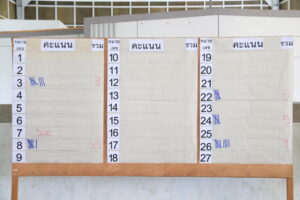 หมายเลข คะแนน รวม หมายเลข คะแนน รวม หมายเลข คะแนน รวม
1 10 19
2 11 20
3 12 21
4 13 22
5 14 23
6 15 24
7 16 25
8 17 26
9 18 27